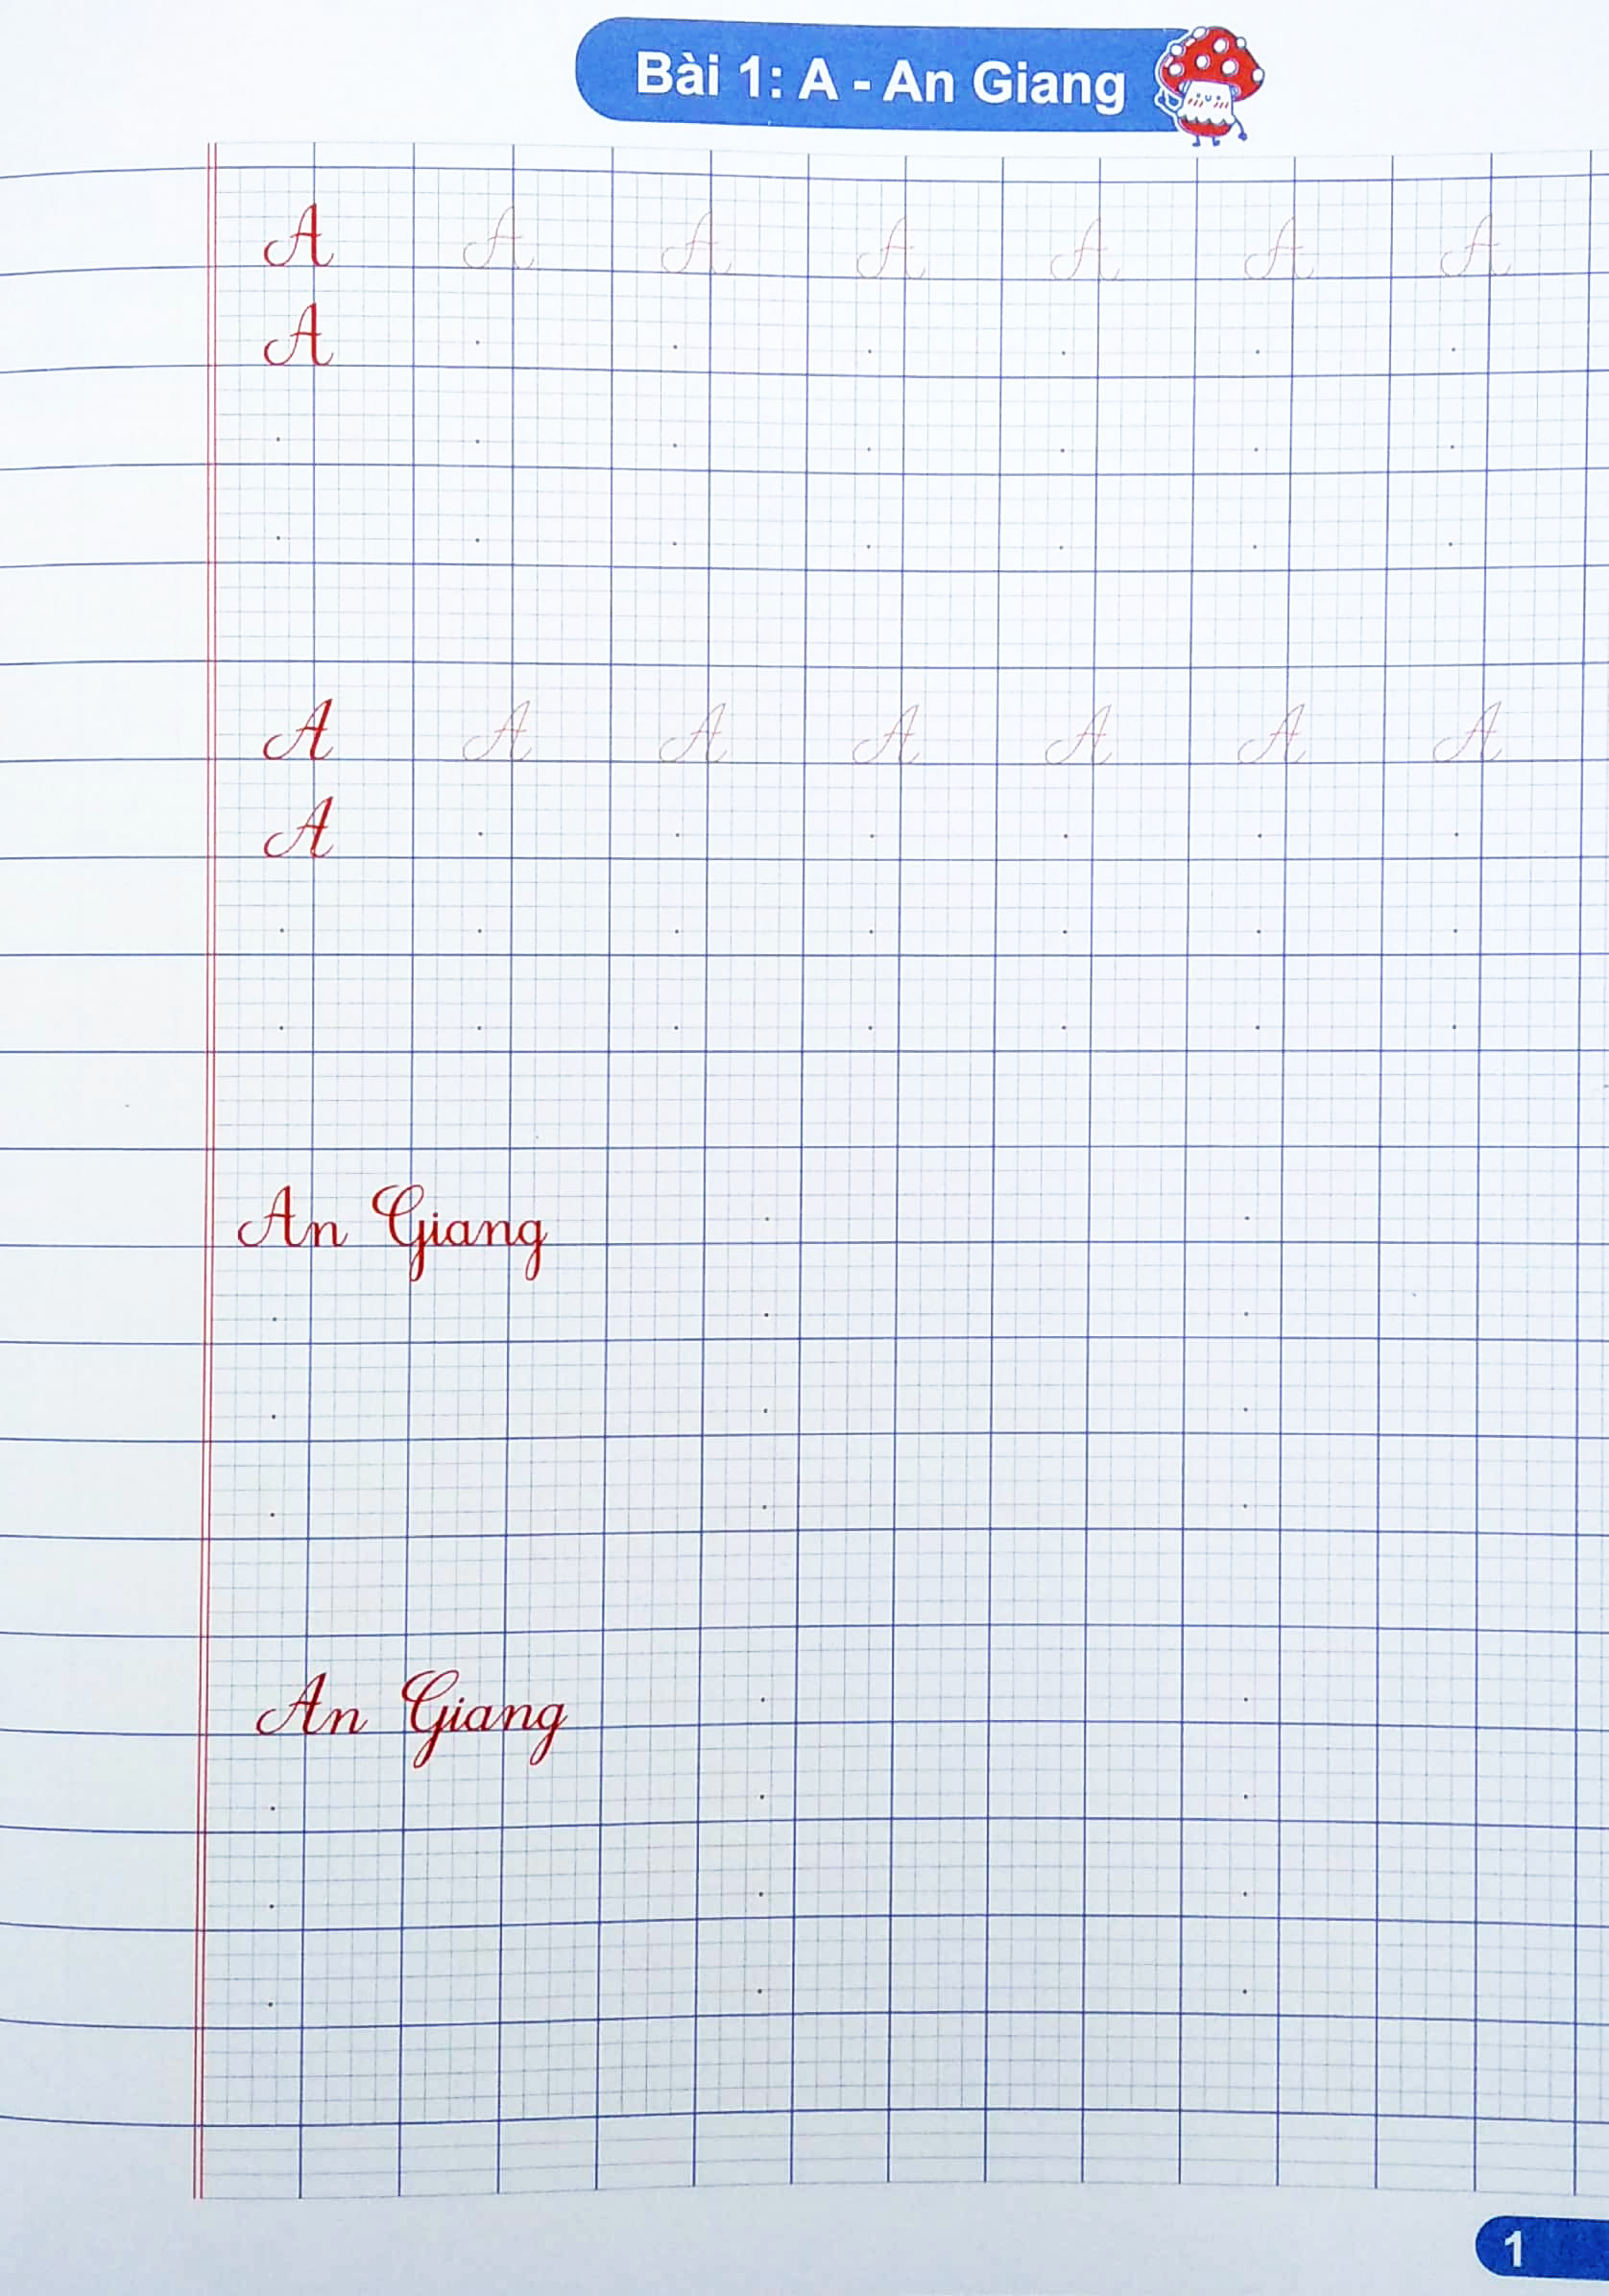 Bài 1: A - An Giang
A A A A A A A
A
A A A A A A A
A
An Giang
An Giang
1